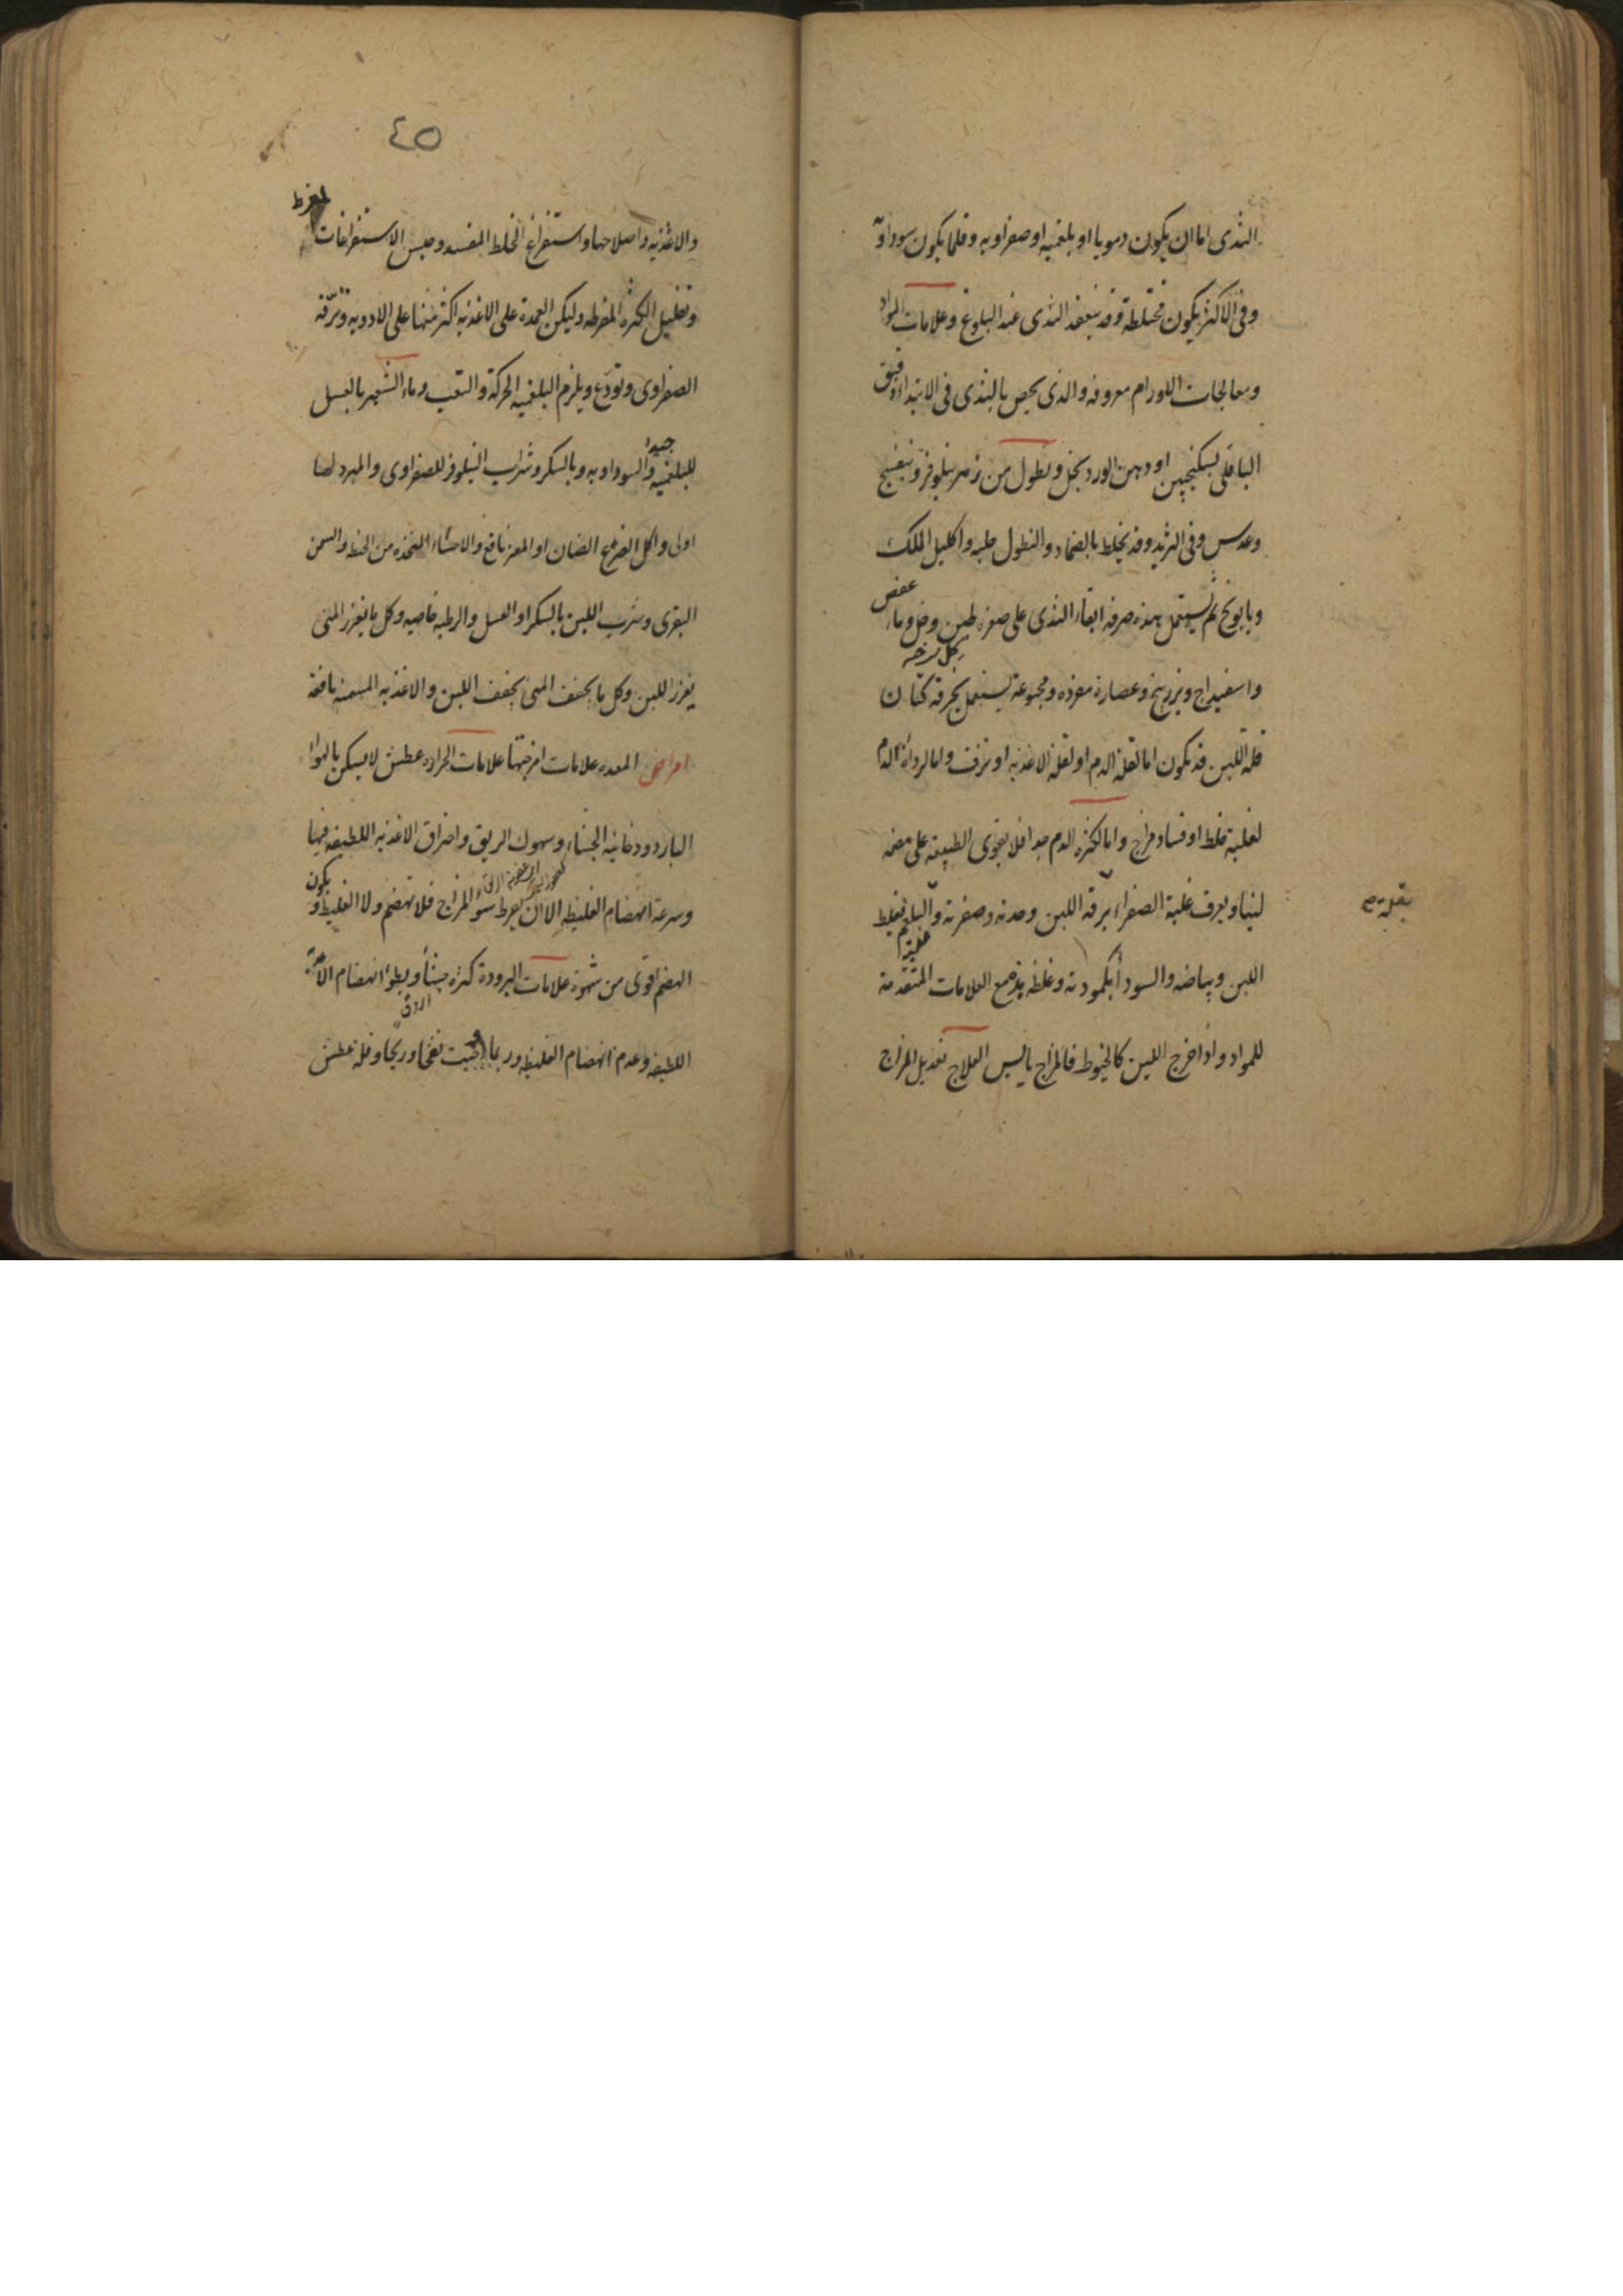 الثدى اما ان يكون دمويا او بلغميه او صفراويه وقلما يكون سوداويه
وفى الاكثر يكون مختلطة وقد ينعقد الثدى عند البلوغ وعلامات المواد
ومعالجات الاورام معروفه والذى يخص بالثدى فى الابتداء دقيق
الباقلى بسكنجبين او دهن الورد بخل ونطول من زهر نيلوفر وبنفسج
وعدس وفى التزيد وقد يخلط بالضماد والنطول حلبه واكليل الملك
وبابونج ثم يستعمل هذه صرفه ابقاء الثدى على صغره طين وخل وماء عفص
واسفيداج وبزر بنج وعصارة مفرده ومجموعة يستعمل بخرقة كتان
قلة اللبن قد تكون اما لقلة الدم او لقلة الاغذيه او نزف واما لرداءة الدم
لغلبة خلط او فساد مزاج واما لكثرة الدم جدا فلا يقوى الطبيعة على هضمه
لبنا ويعرف غلبة الصفراء برقة اللبن وحدته وصفرته والبلغم بغلظ
اللبن وبياضه والسوداء بكمودته وغلظه مع العلامات المتقدمة
للمواد واذا خرج اللبن كالخيوط فالمزاج يابس العلاج تعديل المزاج
٤٥
والاغذيه واصلاحها واستفراغ الخلط المفسد وحبس الاستفراغات المفرط
وتقليل الكثرة المفرطه وليكن العمدة على الاغذيه اكثر منها على الادويه وترفه
الصفراوى وتودع ويلزم البلغميه الحركة والتعب وماء الشعير بالعسل
للبلغميه جيدا والسوداويه وبالسكر وشراب النيلوفر للصفراوى والمبرد لها
اولى واكل الضرع الضان او المعز نافع والاحشاء المتخذه من الحنطه والسمن
البقرى وشرب اللبن بالسكر او العسل والرطبه خاصيه وكل ما يغزر المنى
يغزر اللبن وكل ما يجفف المنى يجفف اللبن والاغذيه المسمنه نافعة
امراض المعده علامات امزجتها علامات الحراره عطش لا يسكن بالهواء
البارد ودخانية الجشاء وسهوك الريق واحتراق الاغذيه اللطيفه فيها
وسرعة انهضام الغليظه الا ان يفرط سوء المزاج فلا تهضم ولا الغليظ ويكون
الهضم اقوى من شهوة علامات البرودة كثرة جشاء وبطوء انهضام الاغذية
اللطيفه وعدم انهضام الغليظه وربما اوجبت نفخا وريحا وقلة عطش